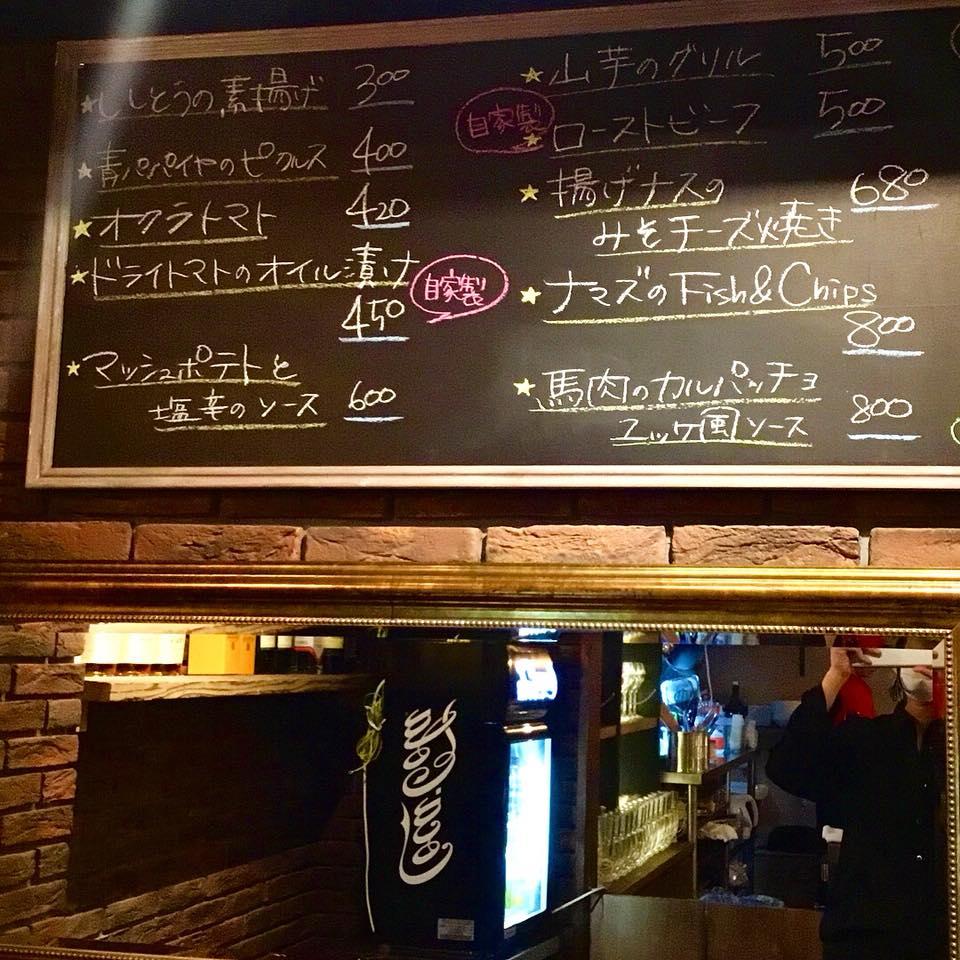 ★ししとうの素揚げ 300
★青パパイヤのピクルス 400
★オクラトマト 420
★ドライトマトのオイル漬け
自家製
450
★マッシュポテトと
塩辛のソース 600
★山芋のグリル 500
自家製
★ローストビーフ 500
★揚げナスの 680
みそチーズ焼き
★ナマズのFish&Chips
800
★馬肉のカルパッチョ
ユッケ風ソース 800
Coca-Cola